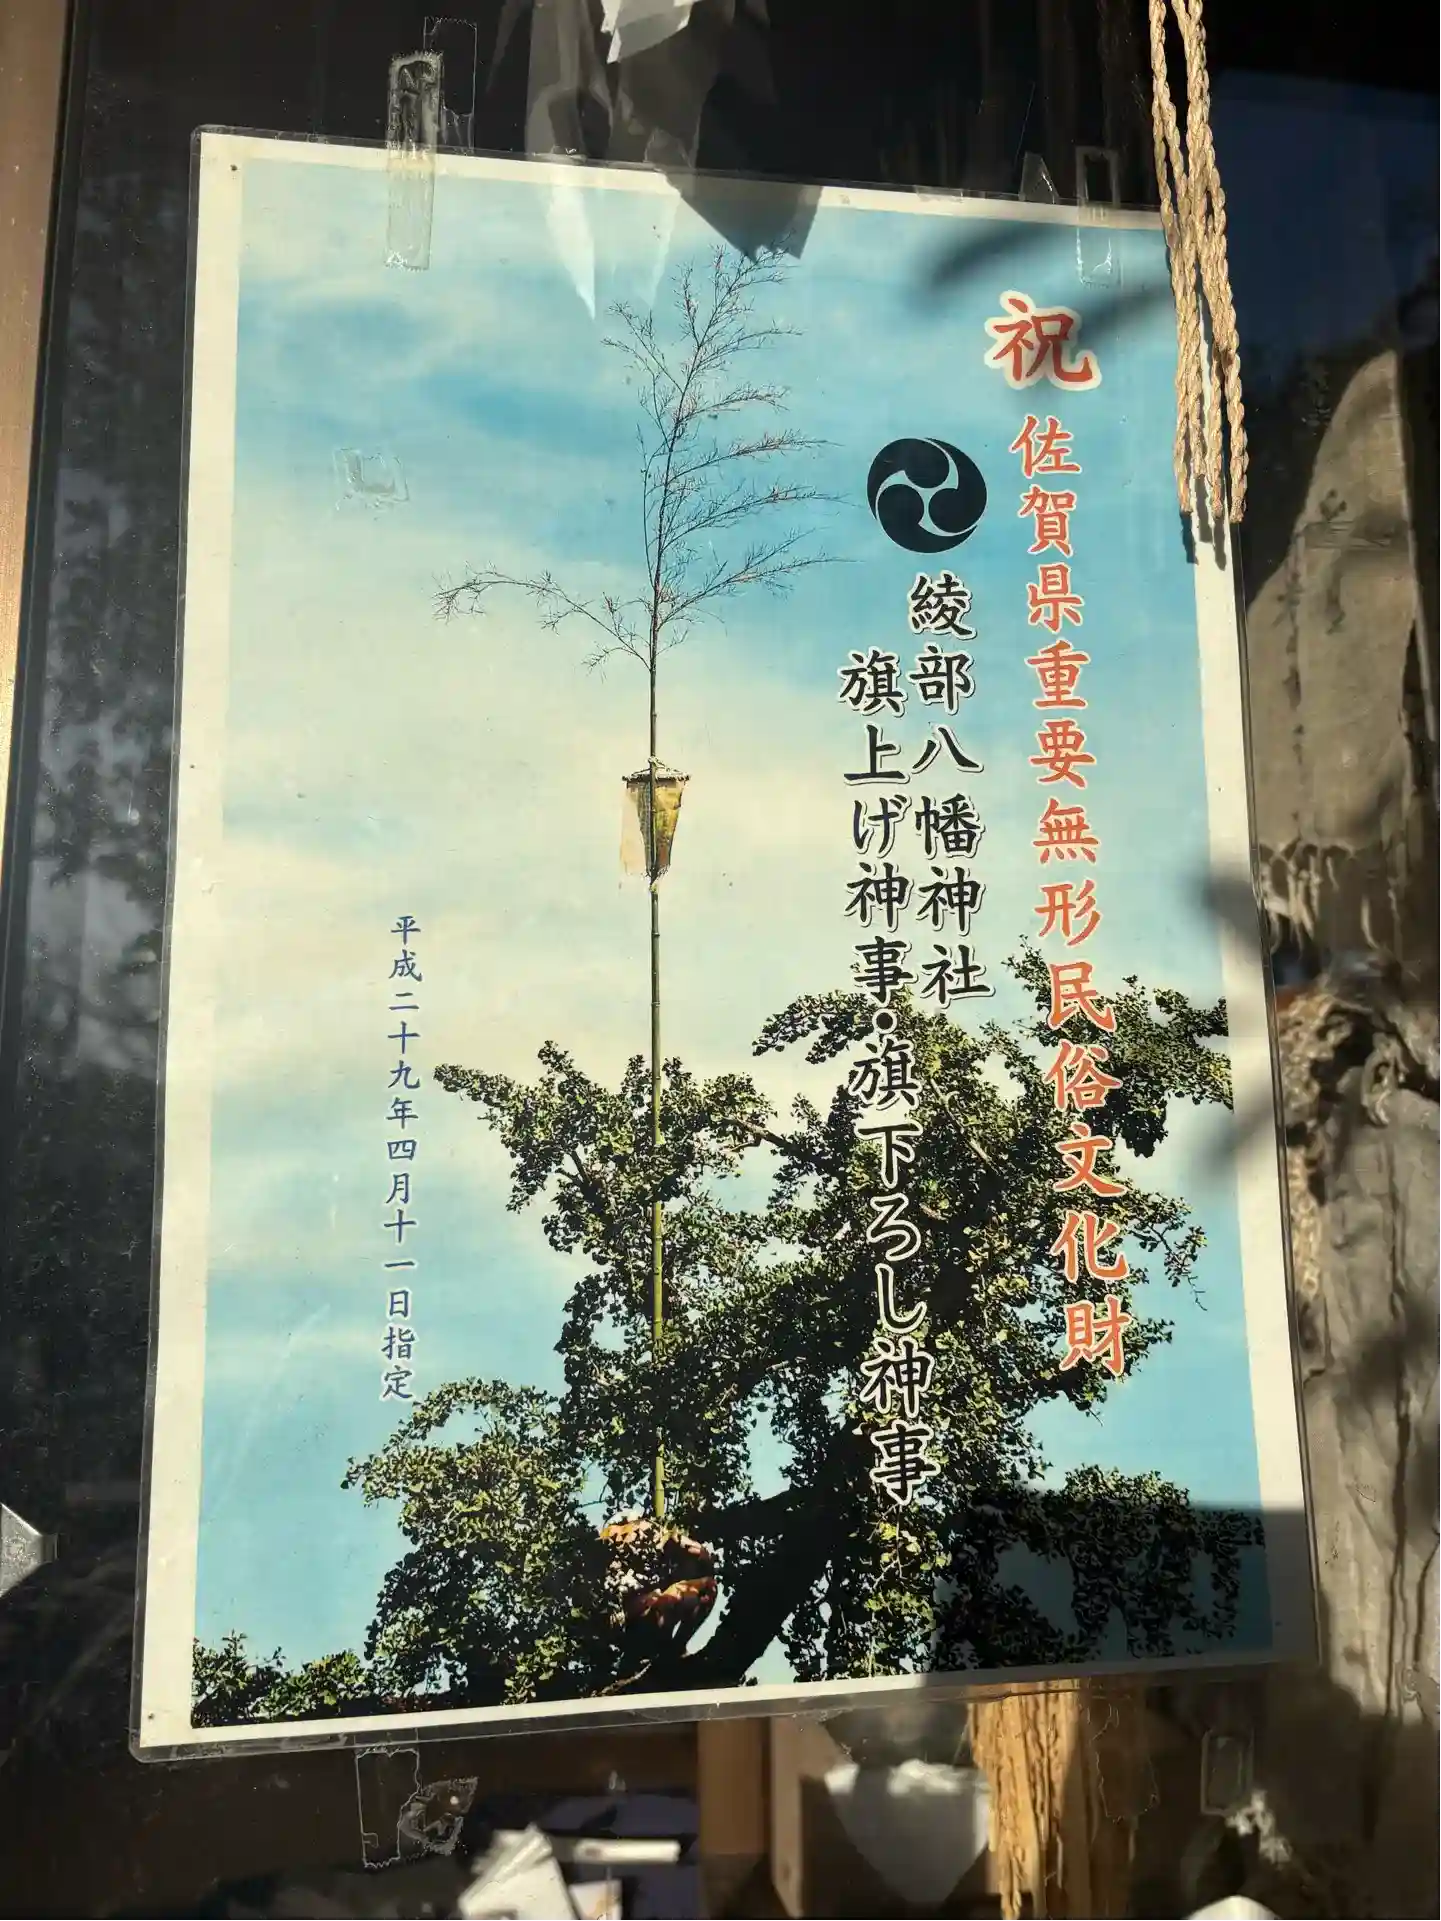 祝
佐賀県重要無形民俗文化財
綾部八幡神社
旗上げ神事・旗下ろし神事
平成二十九年四月十一日指定